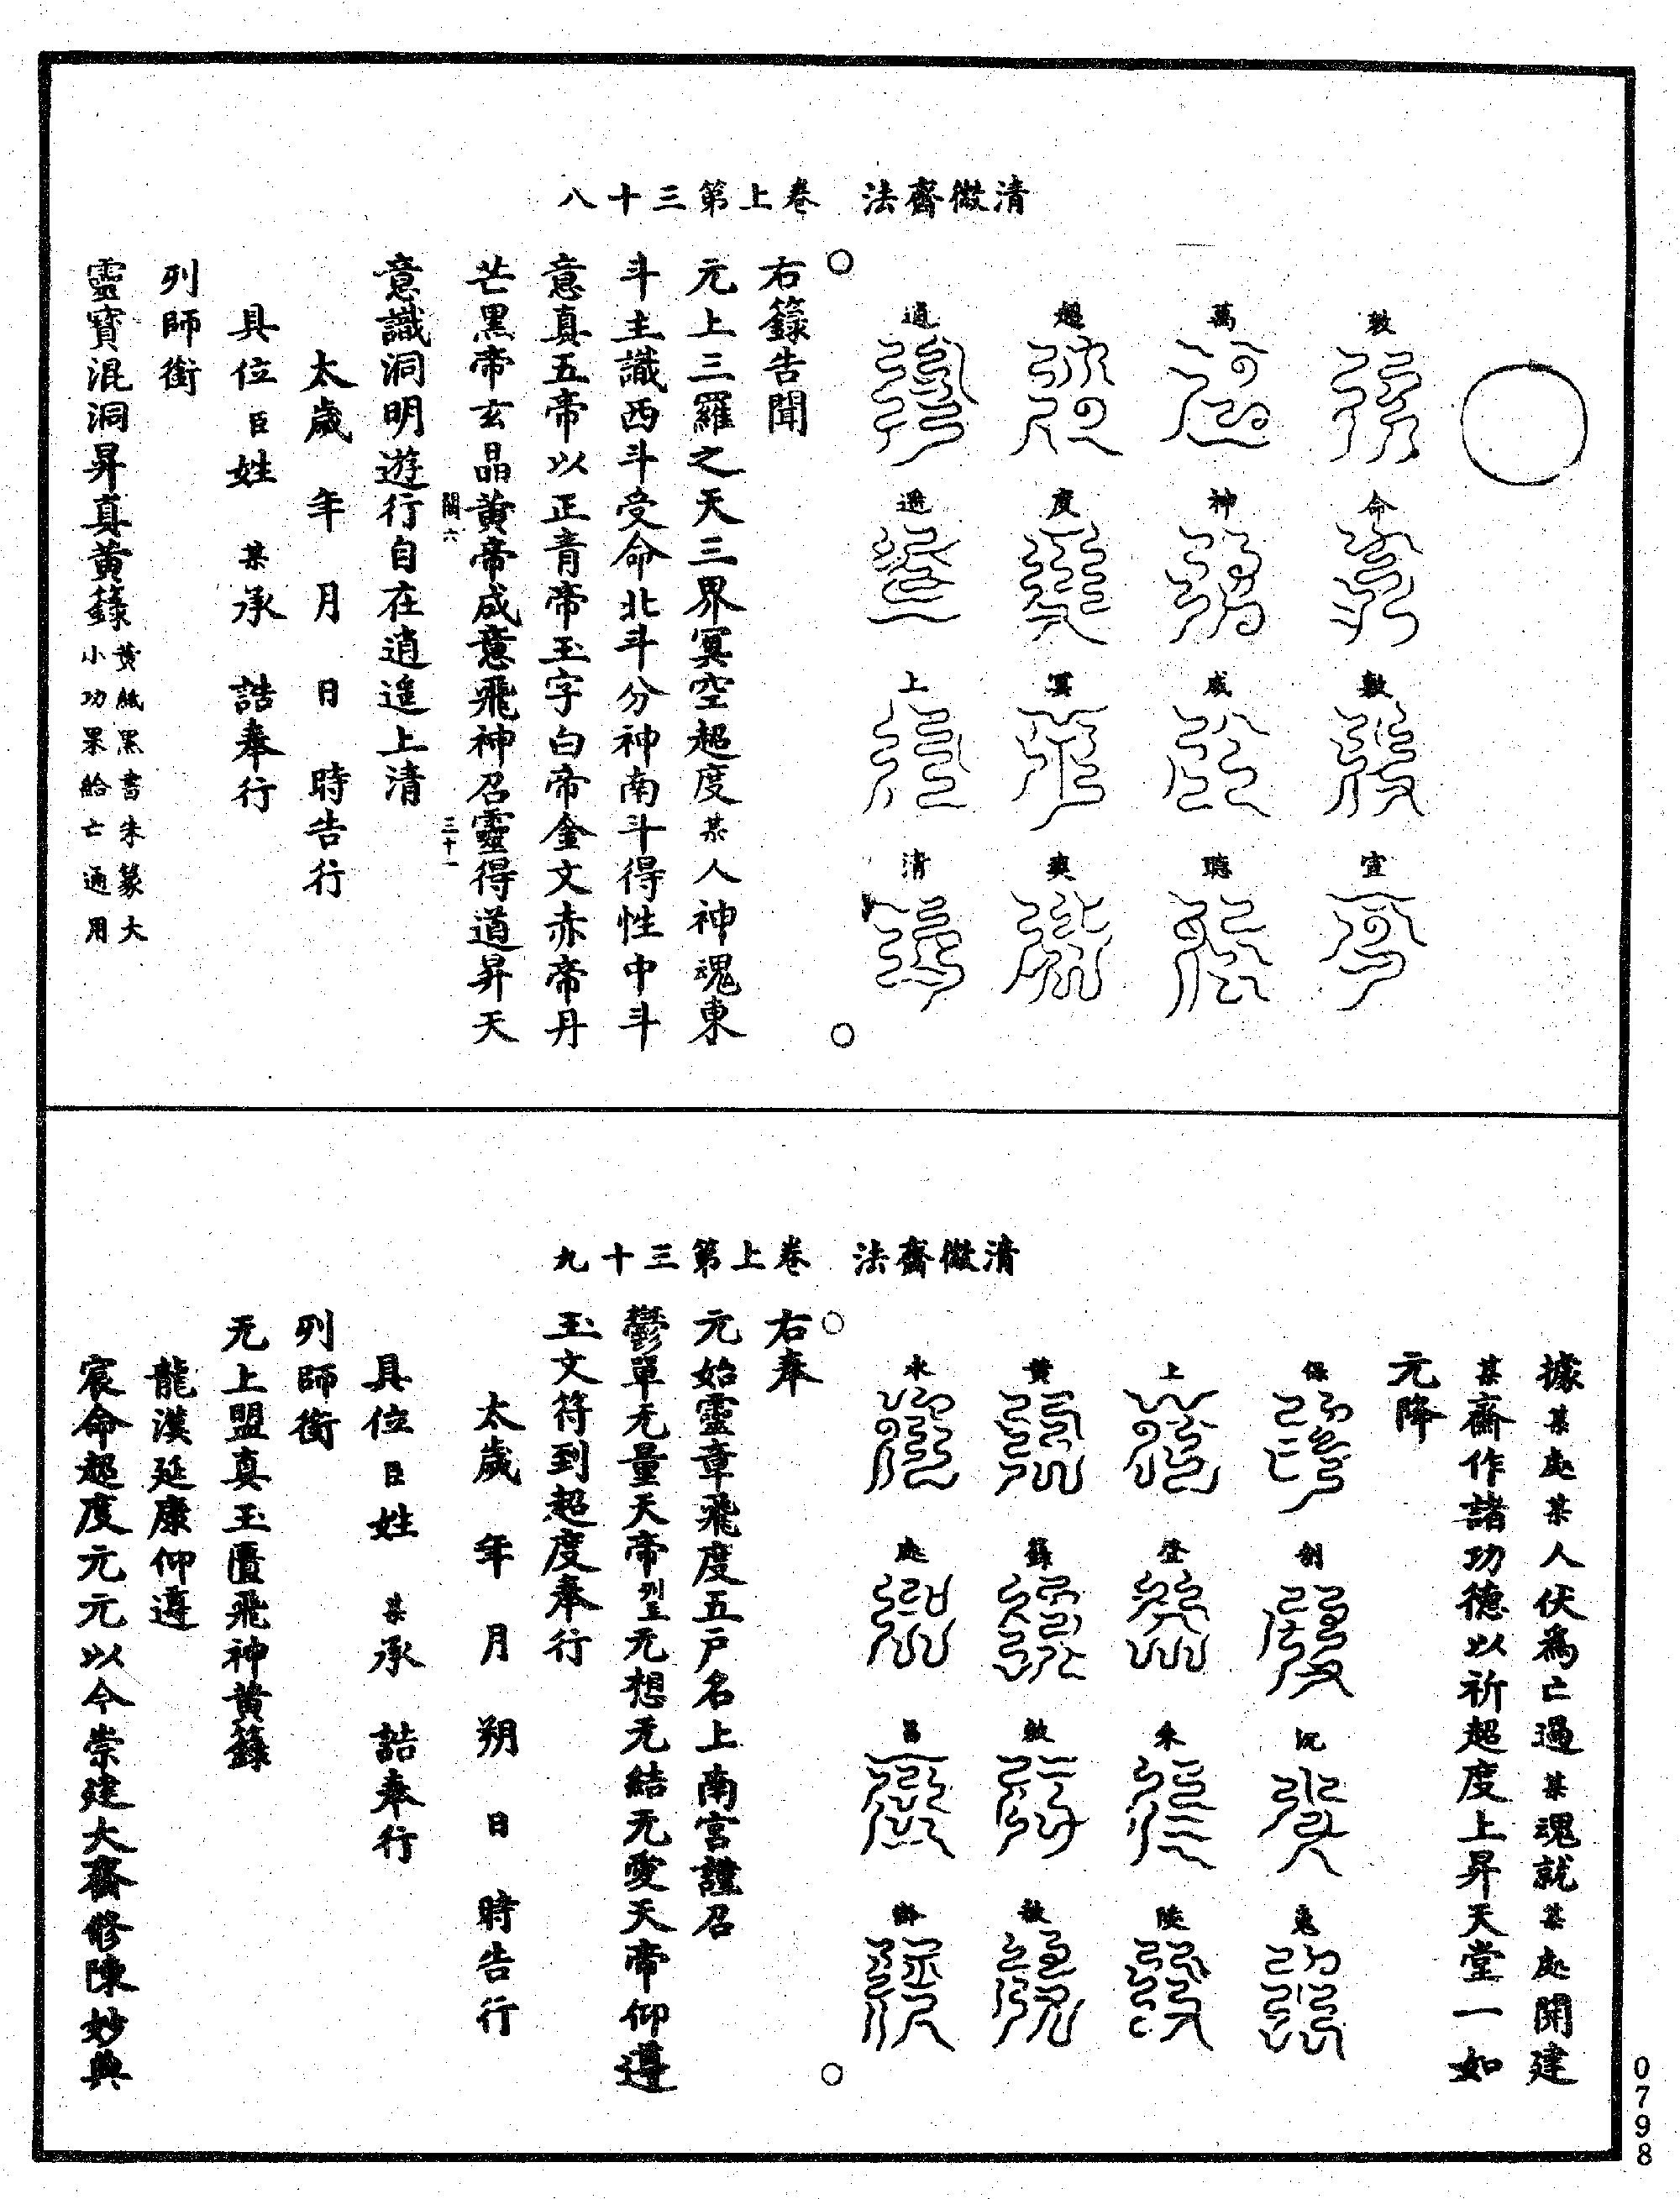 清微齋法　卷上第三十八
敕命敷宣
萬神咸聽
超度冥爽
逍遥上清
右籙告聞
元上三羅之天三界冥空超度某人神魂東
斗主識西斗受命北斗分神南斗得性中斗
意真五帝以正青帝玉字白帝金文赤帝丹
芒黑帝玄晶黃帝咸意飛神召靈得道昇天
闕六　三十一
意識洞明遊行自在逍遥上清
太歲　年　月　日　時告行
具位臣姓　某承　誥奉行
列師銜
靈寶混洞昇真黃籙黃紙黑書朱篆大
小功果給亡通用
清微齋法　卷上第三十九
據某處某人伏為亡過某魂就某處開建
某齋作諸功德以祈超度上昇天堂一如
元降
保制
上登朱陵
黃籙
永處昌
右奉
元始靈章飛度五戶名上南宮謹召
鬱單无量天帝列至无想无結无愛天帝仰遵
玉文符到超度奉行
太歲　年　月　朔　日　時告行
具位臣姓　某承　誥奉行
列師銜
无上盟真玉匱飛神黃籙
龍漢延康仰遵
宸命超度元元以今崇建大齋修陳妙典
0798